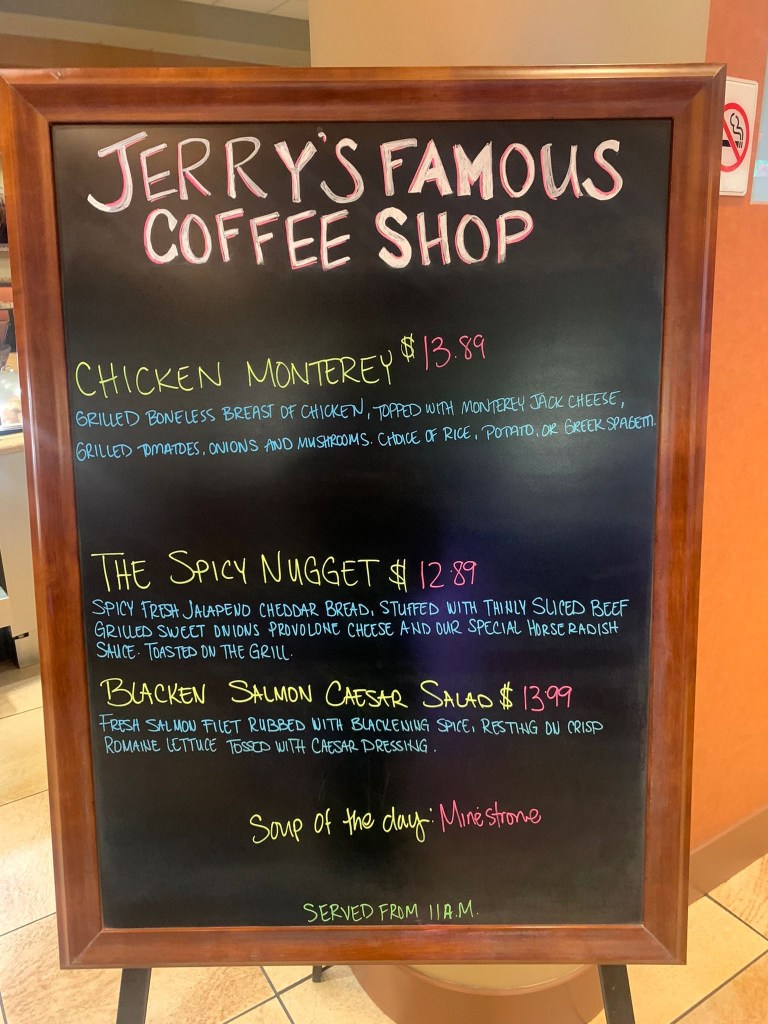 JERRY'S FAMOUS
COFFEE SHOP
CHICKEN MONTEREY $13.89
GRILLED BONELESS BREAST OF CHICKEN, TOPPED WITH MONTEREY JACK CHEESE,
GRILLED TOMATOES, ONIONS AND MUSHROOMS. CHOICE OF RICE, POTATO, OR GREEK SPAGETTI.
THE SPICY NUGGET $12.89
SPICY FRESH JALAPENO CHEDDAR BREAD, STUFFED WITH THINLY SLICED BEEF
GRILLED SWEET ONIONS PROVOLONE CHEESE AND OUR SPECIAL HORSERADISH
SAUCE. TOASTED ON THE GRILL.
BLACKEN SALMON CAESAR SALAD $13.99
FRESH SALMON FILET RUBBED WITH BLACKENING SPICE, RESTING ON CRISP
ROMAINE LETTUCE TOSSED WITH CAESAR DRESSING.
Soup of the day: Minestrone
SERVED FROM 11A.M.